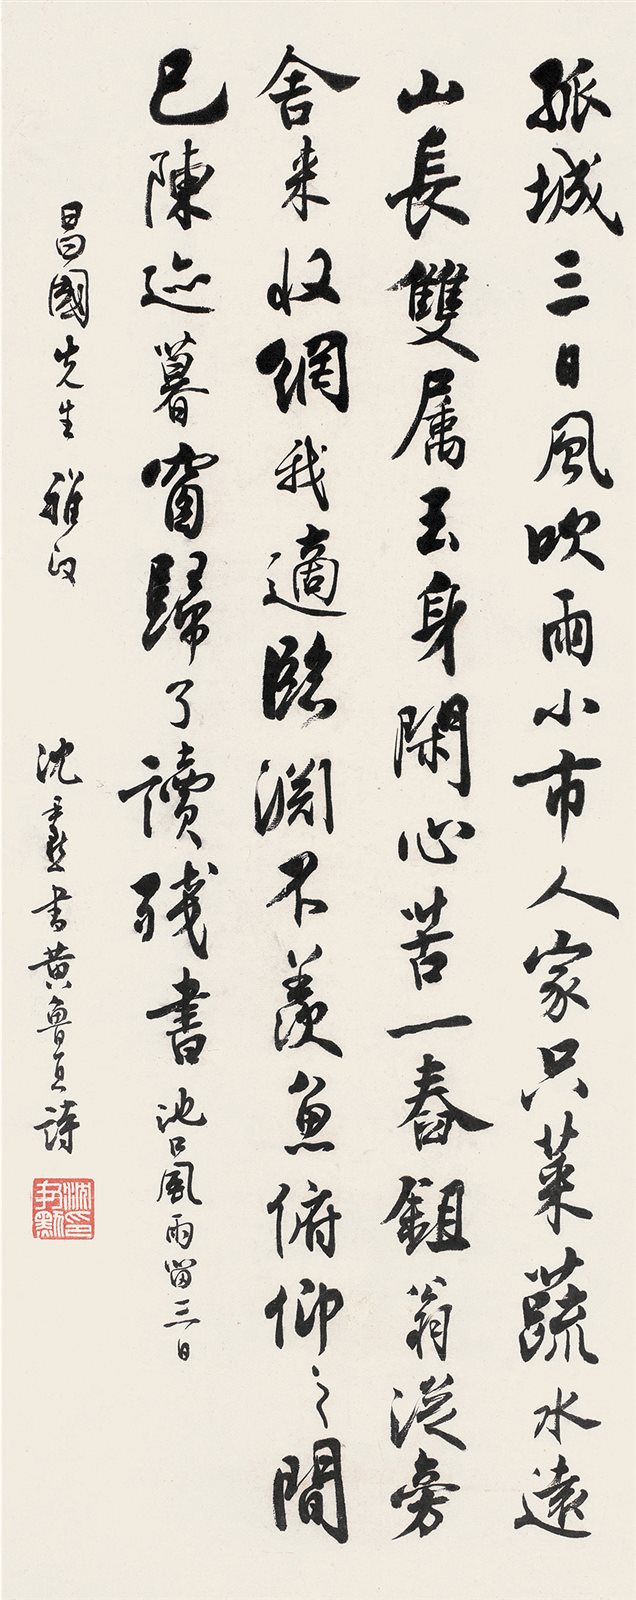 孤城三日風吹雨小市人家只菜蔬水遠
山長雙属玉身閑心苦一舂鉏翁從旁
舍来收網我適臨淵不羨魚俯仰之間
已陳迹暮窗歸了讀殘書池口風雨留三日
昌國先生雅
沈尹默書黄魯直詩
沈尹默印